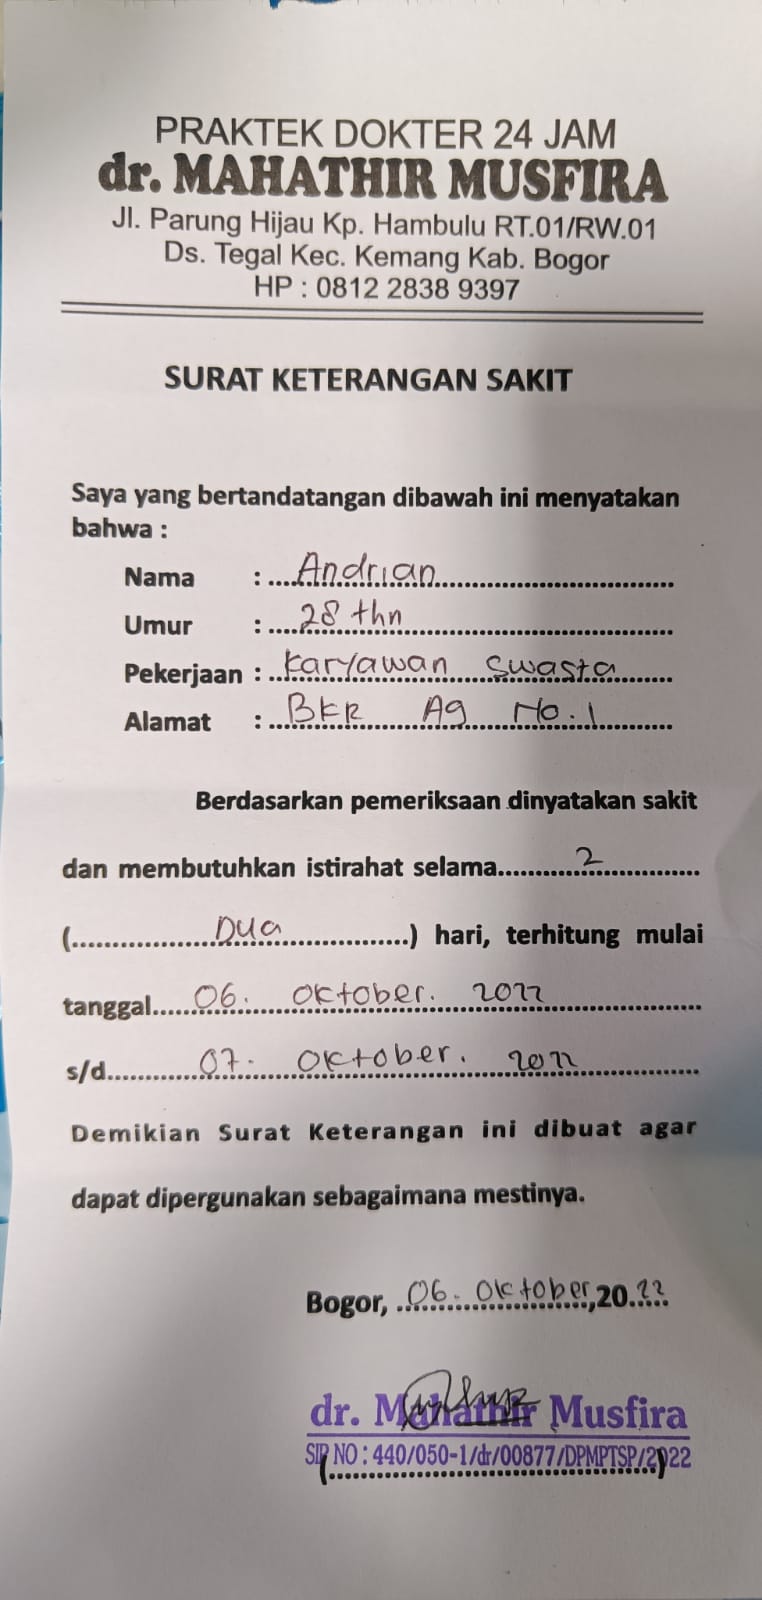 PRAKTEK DOKTER 24 JAM
dr. MAHATHIR MUSFIRA
Jl. Parung Hijau Kp. Hambulu RT.01/RW.01
Ds. Tegal Kec. Kemang Kab. Bogor
HP : 0812 2838 9397
SURAT KETERANGAN SAKIT
Saya yang bertandatangan dibawah ini menyatakan
bahwa :
Nama : Andrian
Umur : 28 thn
Pekerjaan : Karyawan Swasta
Alamat : BKR Ag No. 1
Berdasarkan pemeriksaan dinyatakan sakit
dan membutuhkan istirahat selama 2
(Dua) hari, terhitung mulai
tanggal 06. Oktober. 2022
s/d 07. Oktober. 2022
Demikian Surat Keterangan ini dibuat agar
dapat dipergunakan sebagaimana mestinya.
Bogor, 06. Oktober, 2022
dr. Mahathir Musfira
SIP NO : 440/050-1/dr/00877/DPMPTSP/2022